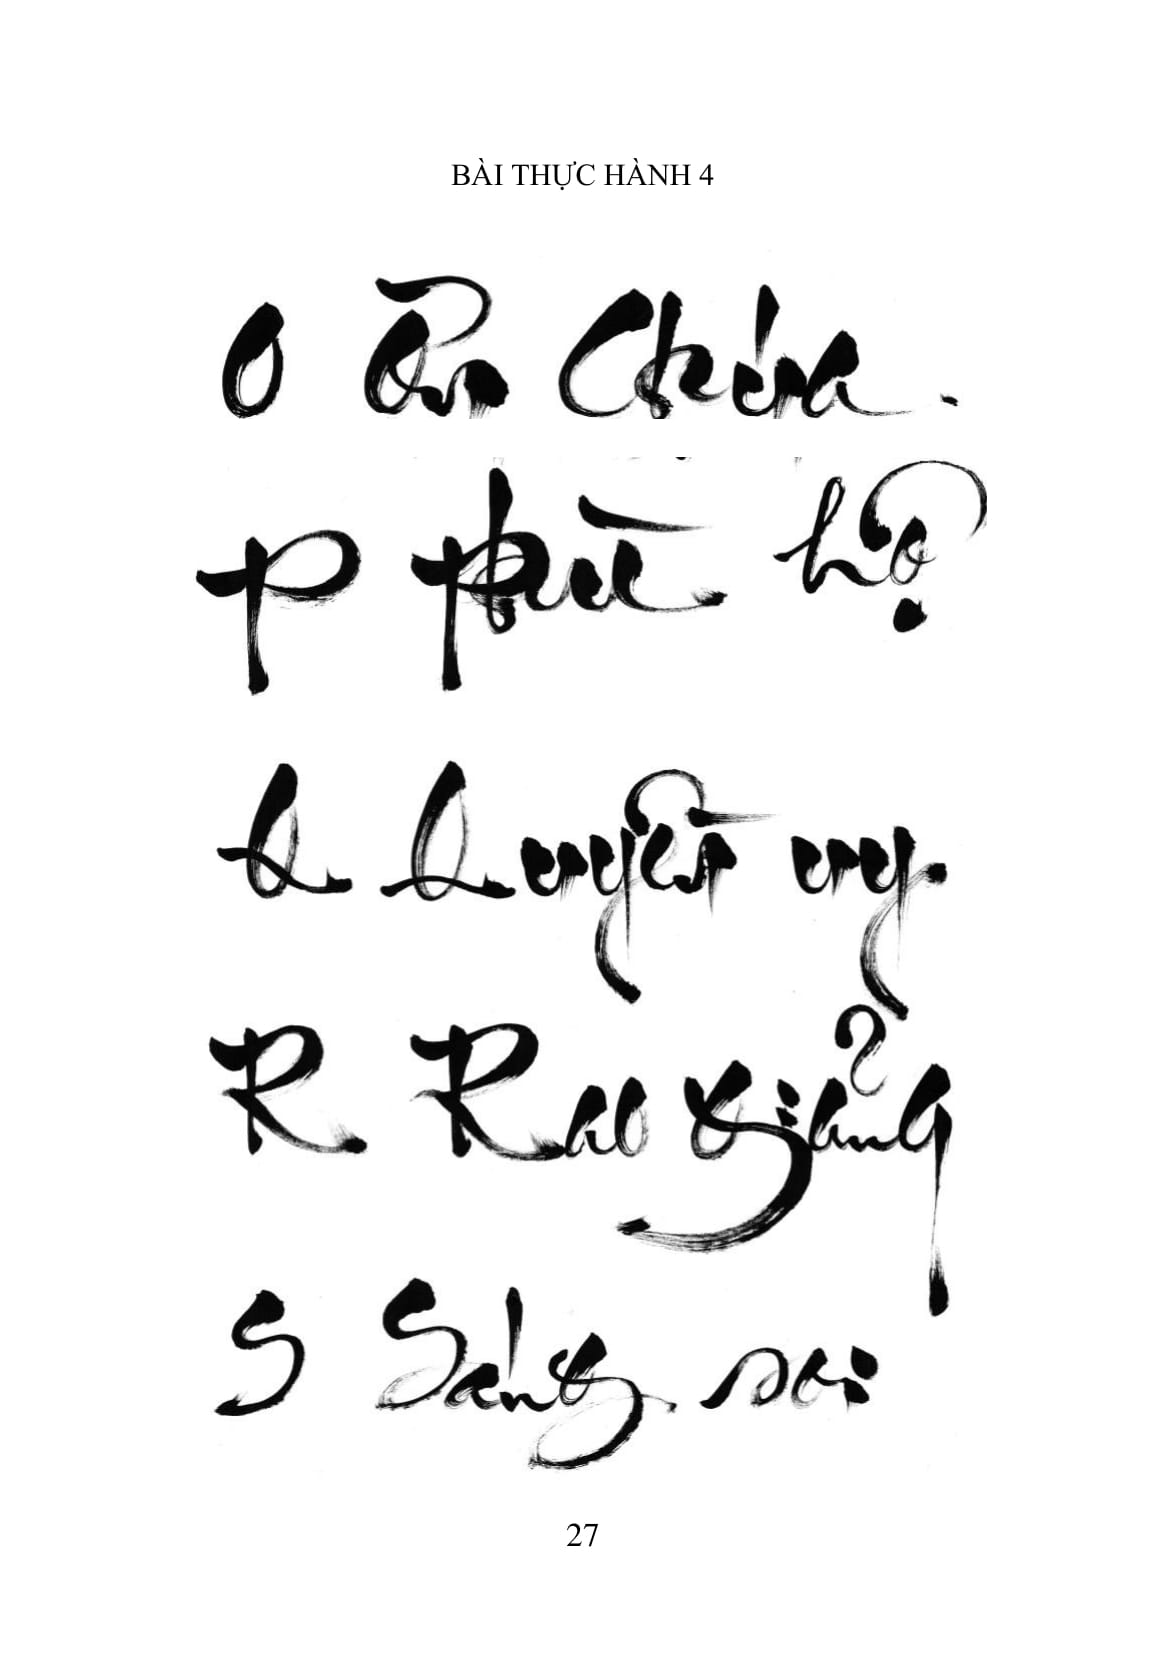 BÀI THỰC HÀNH 4
O Ơn Chúa.
P phù hộ
Q Quyền uy
R Rao giảng
S Sáng soi
27